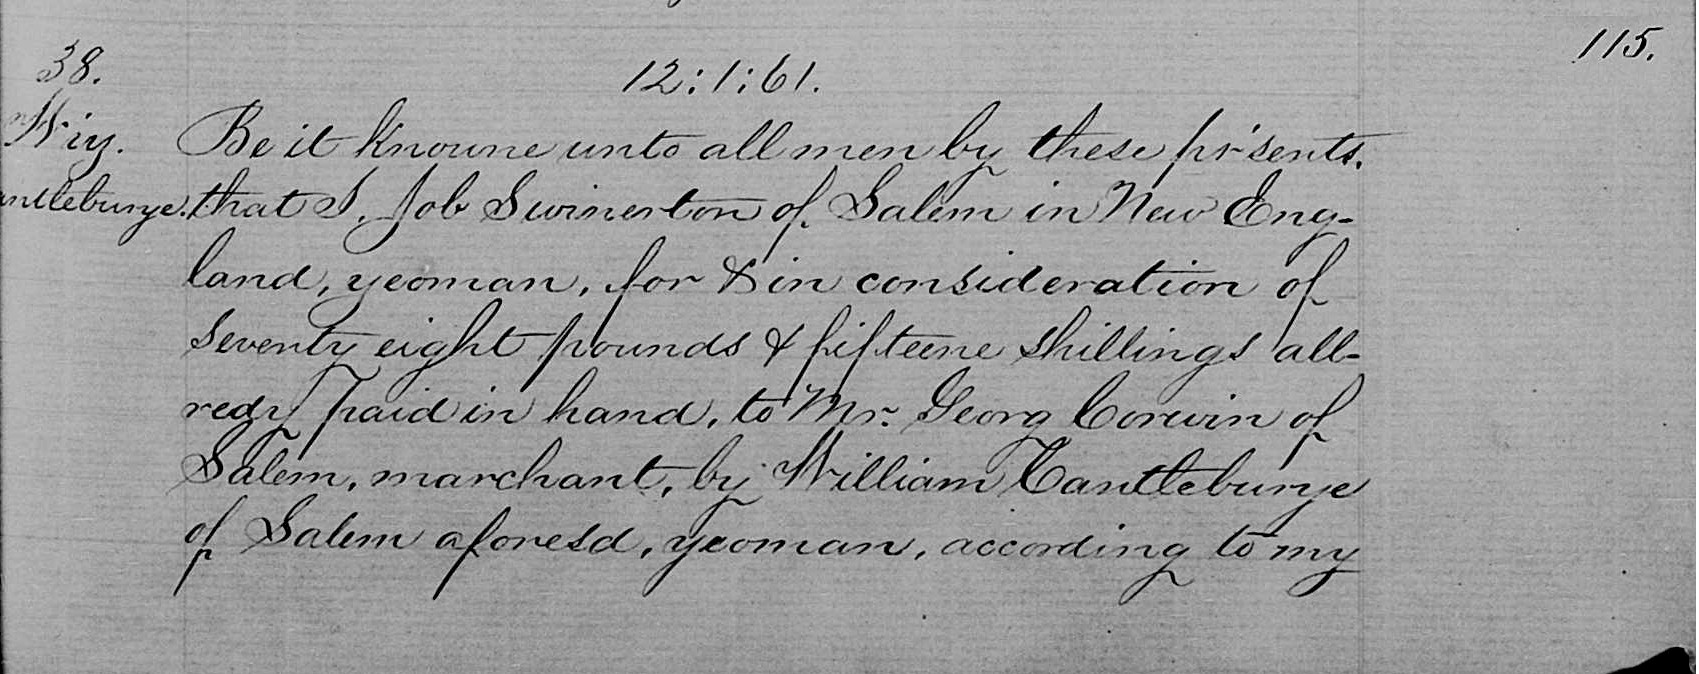 38.
12:1:61.
115.
Wiƺ.
antleburye.
Be it knowne unto all men by these pr'sents,
that I, Job Swinerton of Salem in New Eng-
land, yeoman, for & in consideration of
seventy eight pounds & fifteene shillings all-
redy paid in hand, to Mr. Georg Corwin of
Salem, marchant, by William Cantleburye
of Salem aforesd, yeoman, according to my